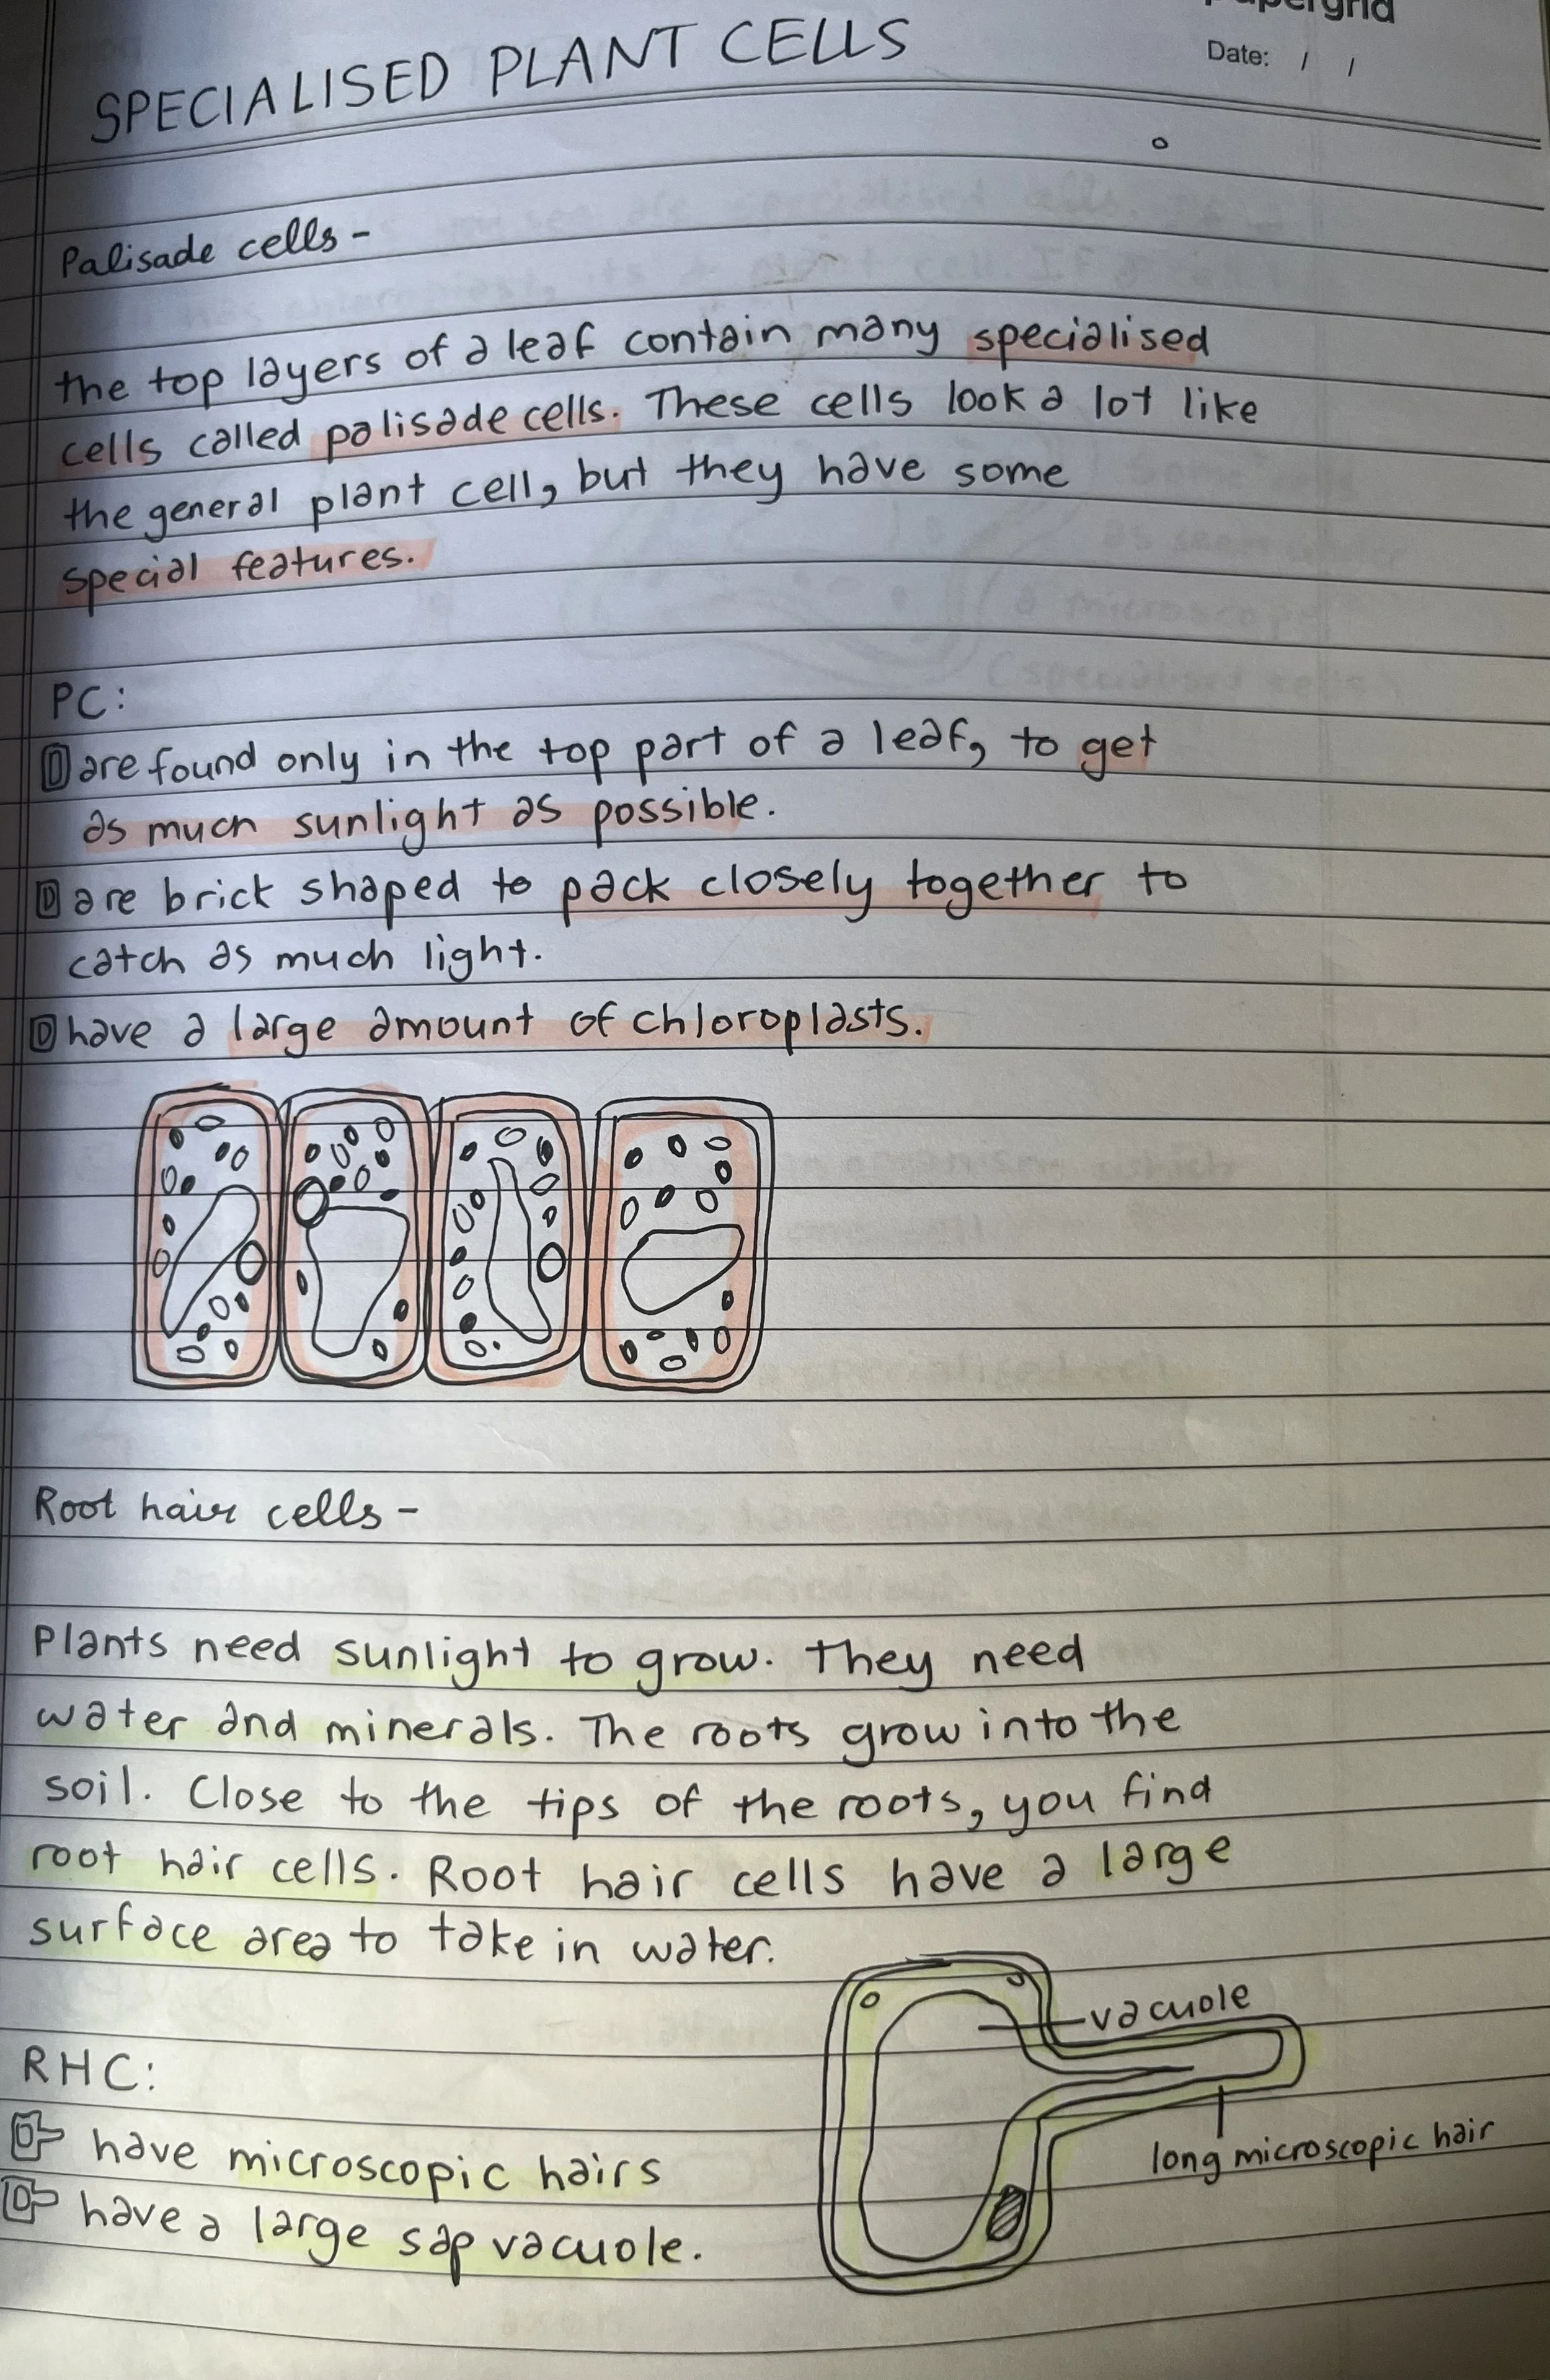 papergrid
Date: / /
SPECIALISED PLANT CELLS
Palisade cells -
the top layers of a leaf contain many specialised
cells called palisade cells. These cells look a lot like
the general plant cell, but they have some
special features.
PC:
are found only in the top part of a leaf, to get
as much sunlight as possible.
are brick shaped to pack closely together to
catch as much light.
have a large amount of chloroplasts.
Root hair cells -
Plants need sunlight to grow. They need
water and minerals. The roots grow into the
soil. Close to the tips of the roots, you find
root hair cells. Root hair cells have a large
surface area to take in water.
vacuole
RHC:
long microscopic hair
have microscopic hairs
have a large sap vacuole.